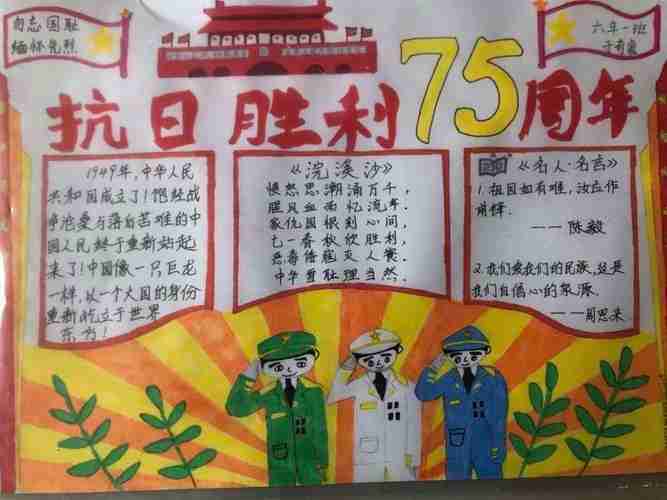 勿忘国耻
缅怀先烈
六年一班
抗日胜利75周年
1949年,中华人民
共和国成立了!饱经战
争沧桑与落后苦难的中
国人民终于重新站起
来了!中国像一只巨龙
一样,以一个大国的身份
重新屹立于世界
东方!
《浣溪沙》
愤怒思潮涌万千,
腥风血雨忆流年。
家仇国恨刻心间,
七一香秋欣胜利,
中华
当然。
《名人·名言》
1.祖国如有难,汝应作
前锋.
——陈毅
2.我们爱我们的民族,这是
我们自信心的泉源.
——周恩来